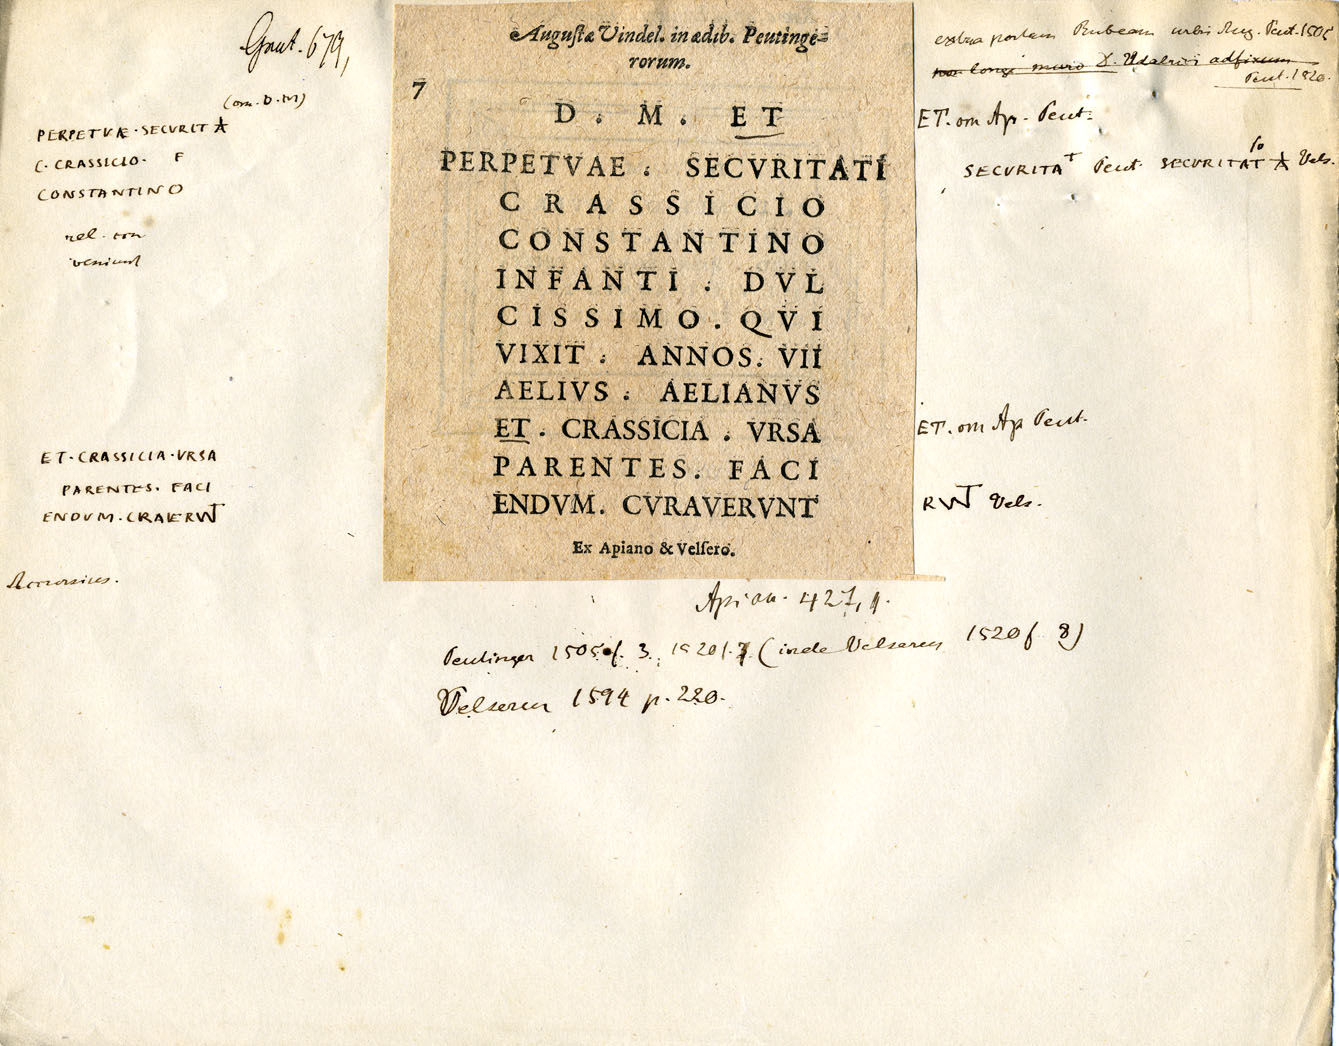 Grut. 679,
(om. D. M)
PERPETVÆ · SECVRIT
C · CRASSICIO · F
CONSTANTINO
rel. con
veniunt
ET · CRASSICIA · VRSA
PARENTES · FACI
ENDVM ·
Accursius.
Augustæ Vindel. in ædib. Peutinge=
rorum.
7
D . M . ET
PERPETVAE . SECVRITATI
CRASSICIO
CONSTANTINO
INFANTI . DVL
CISSIMO . QVI
VIXIT . ANNOS . VII
AELIVS . AELIANVS
ET . CRASSICIA . VRSA
PARENTES . FACI
ENDVM . CVRAVERVNT
Ex Apiano & Velsero.
extra portam Rubeam urbis Aug. Peut. 1505
muro D. Udalrici adfixum
Peut. 1520.
ET. om Ap. Peut.
SECVRITAT Peut SECVRITAT Vels.
ET. om Ap Peut.
Vels.
Apian. 427,
Peutinger 1505 f. 3. 1520 f. 7 (inde Velserus 1520 f 8)
Velserus 1594 p. 220.